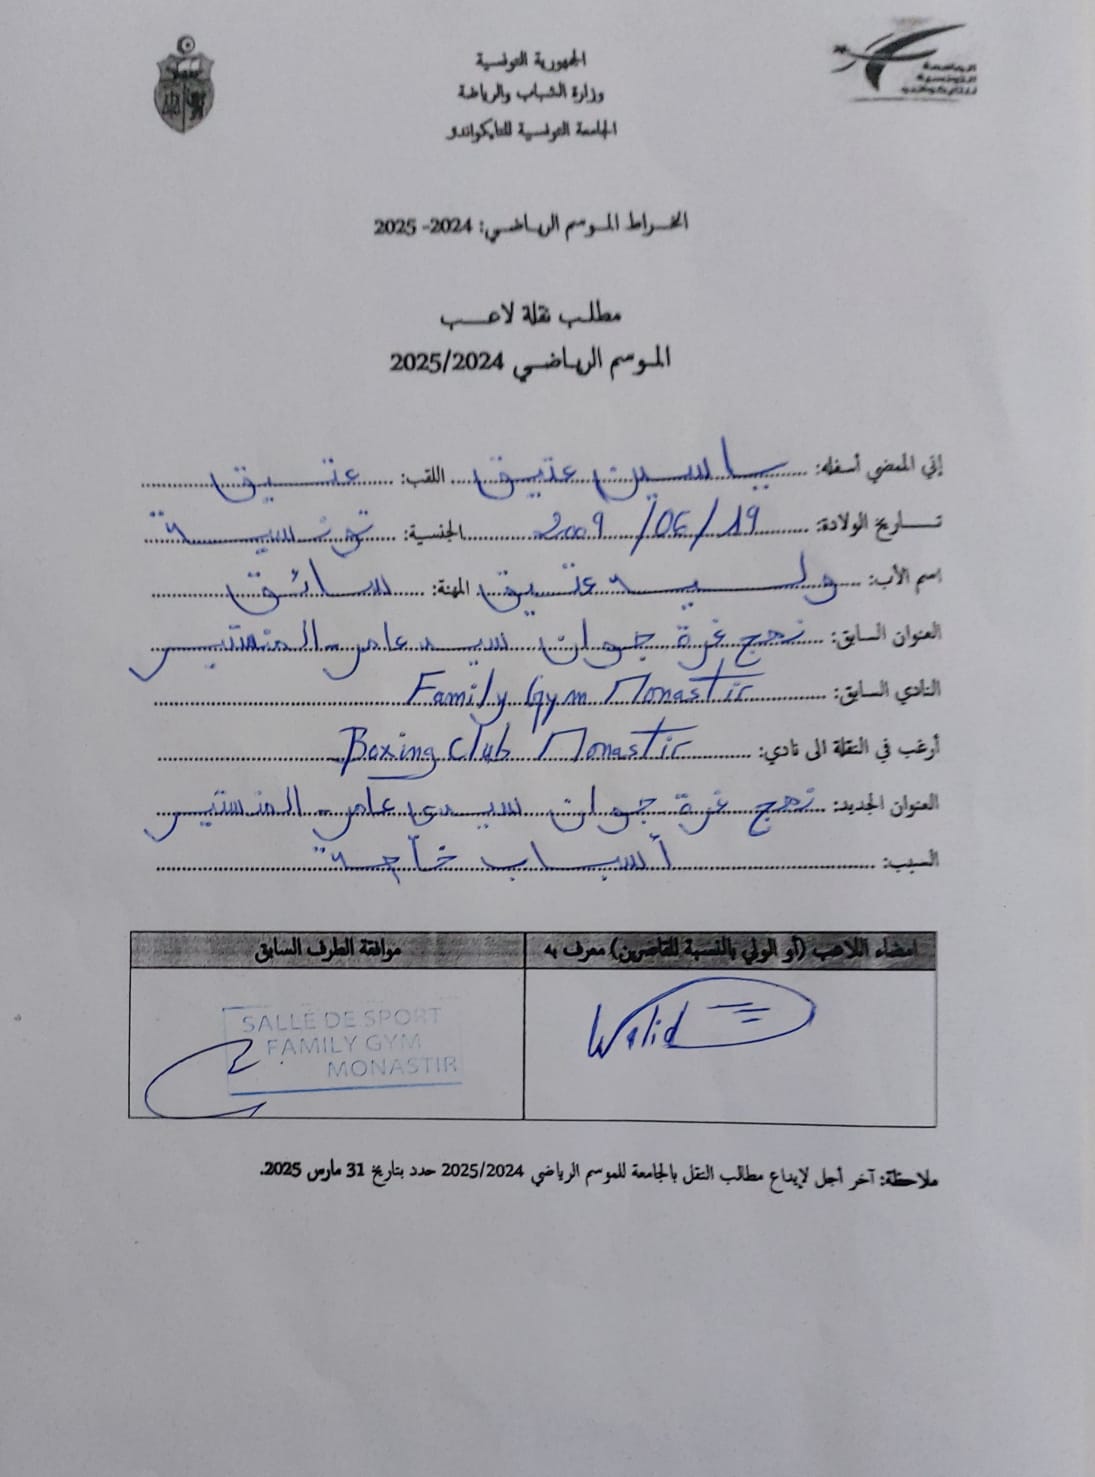 الجمهورية التونسية
وزارة الشباب والرياضة
الجامعة التونسية للتايكواندو
الجامعة
التونسية
للتايكواندو
انخراط الموسم الرياضي: 2024- 2025
مطلب نقلة لاعب
الموسم الرياضي 2025/2024
إني الممضي أسفله: ياسين عتيق اللقب: عتيق
تاريخ الولادة: 19/06/2009 الجنسية: تونسية
اسم الأب: وليد عتيق المهنة: سائق
العنوان السابق: نهج غزة جوان سيدي عامر - المنستير
النادي السابق: Family Gym Monastir
أرغب في النقلة الى نادي: Boxing Club Monastir
العنوان الجديد: نهج غزة جوان سيدي عامر - المنستير
السبب: أسباب خاصة
امضاء اللاعب (أو الولي بالنسبة للقاصرين) معرف به
موافقة الطرف السابق
Walid
SALLE DE SPORT
FAMILY GYM
MONASTIR
ملاحظة: آخر أجل لإيداع مطالب النقل بالجامعة للموسم الرياضي 2025/2024 حدد بتاريخ 31 مارس 2025.